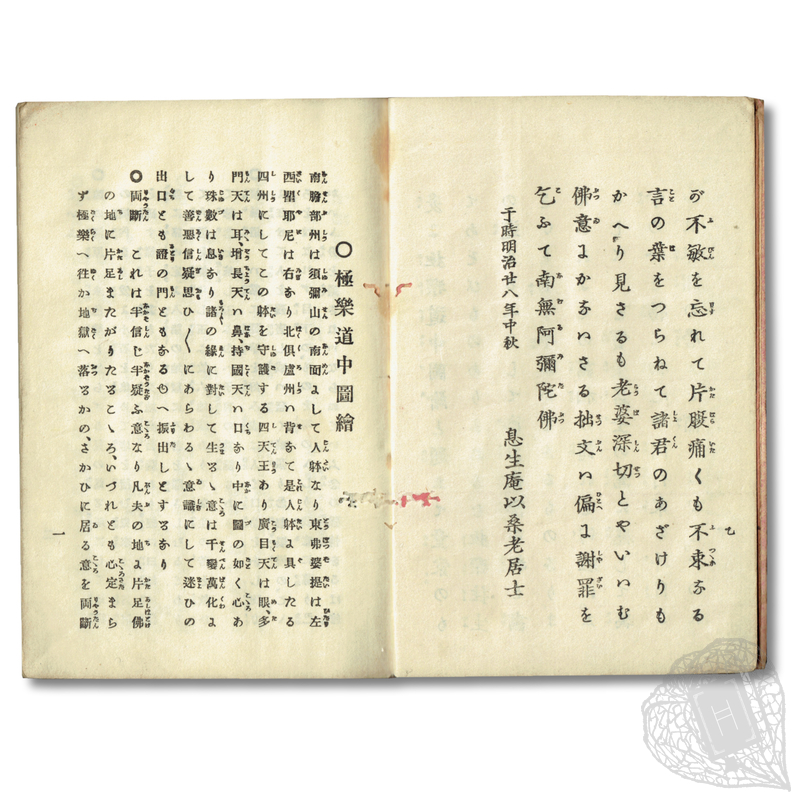 が不敏を忘れて片腹痛くも不束なる
言の葉をつらねて諸君のあざけりも
かへり見さるも老婆深切とやいハむ
佛意にかなハさる拙文ハ偏に謝罪を
乞ふて南無阿彌陀佛
于時明治廿八年中秋
息生庵以桑老居士
七
〇極樂道中圖繪
南贍部州は須彌山の南面よして人躰なり東弗婆提は左
西瞿耶尼は右なり北俱盧州ハ背かて是人躰よ具したる
四州にしてこの躰を守護する四天王あり廣目天は眼、多
門天は耳、増長天ハ鼻、持國天ハ口なり中に圖の如く心あ
り珠數は息なり諸の緣に對して生るゝ意は千變萬化よ
して善惡信疑思ひ〱にあらわるゝ意識にして迷ひの
出口とも證の門ともなる也へ振出しとするなり
〇両斷 これは半信じ半疑ふ意なり凡夫の地よ片足佛
の地に片足またがりたるこゝろ、いづれとも心定まら
ず極樂へ往か地獄へ落るかの、さかひに居る意を両斷
一